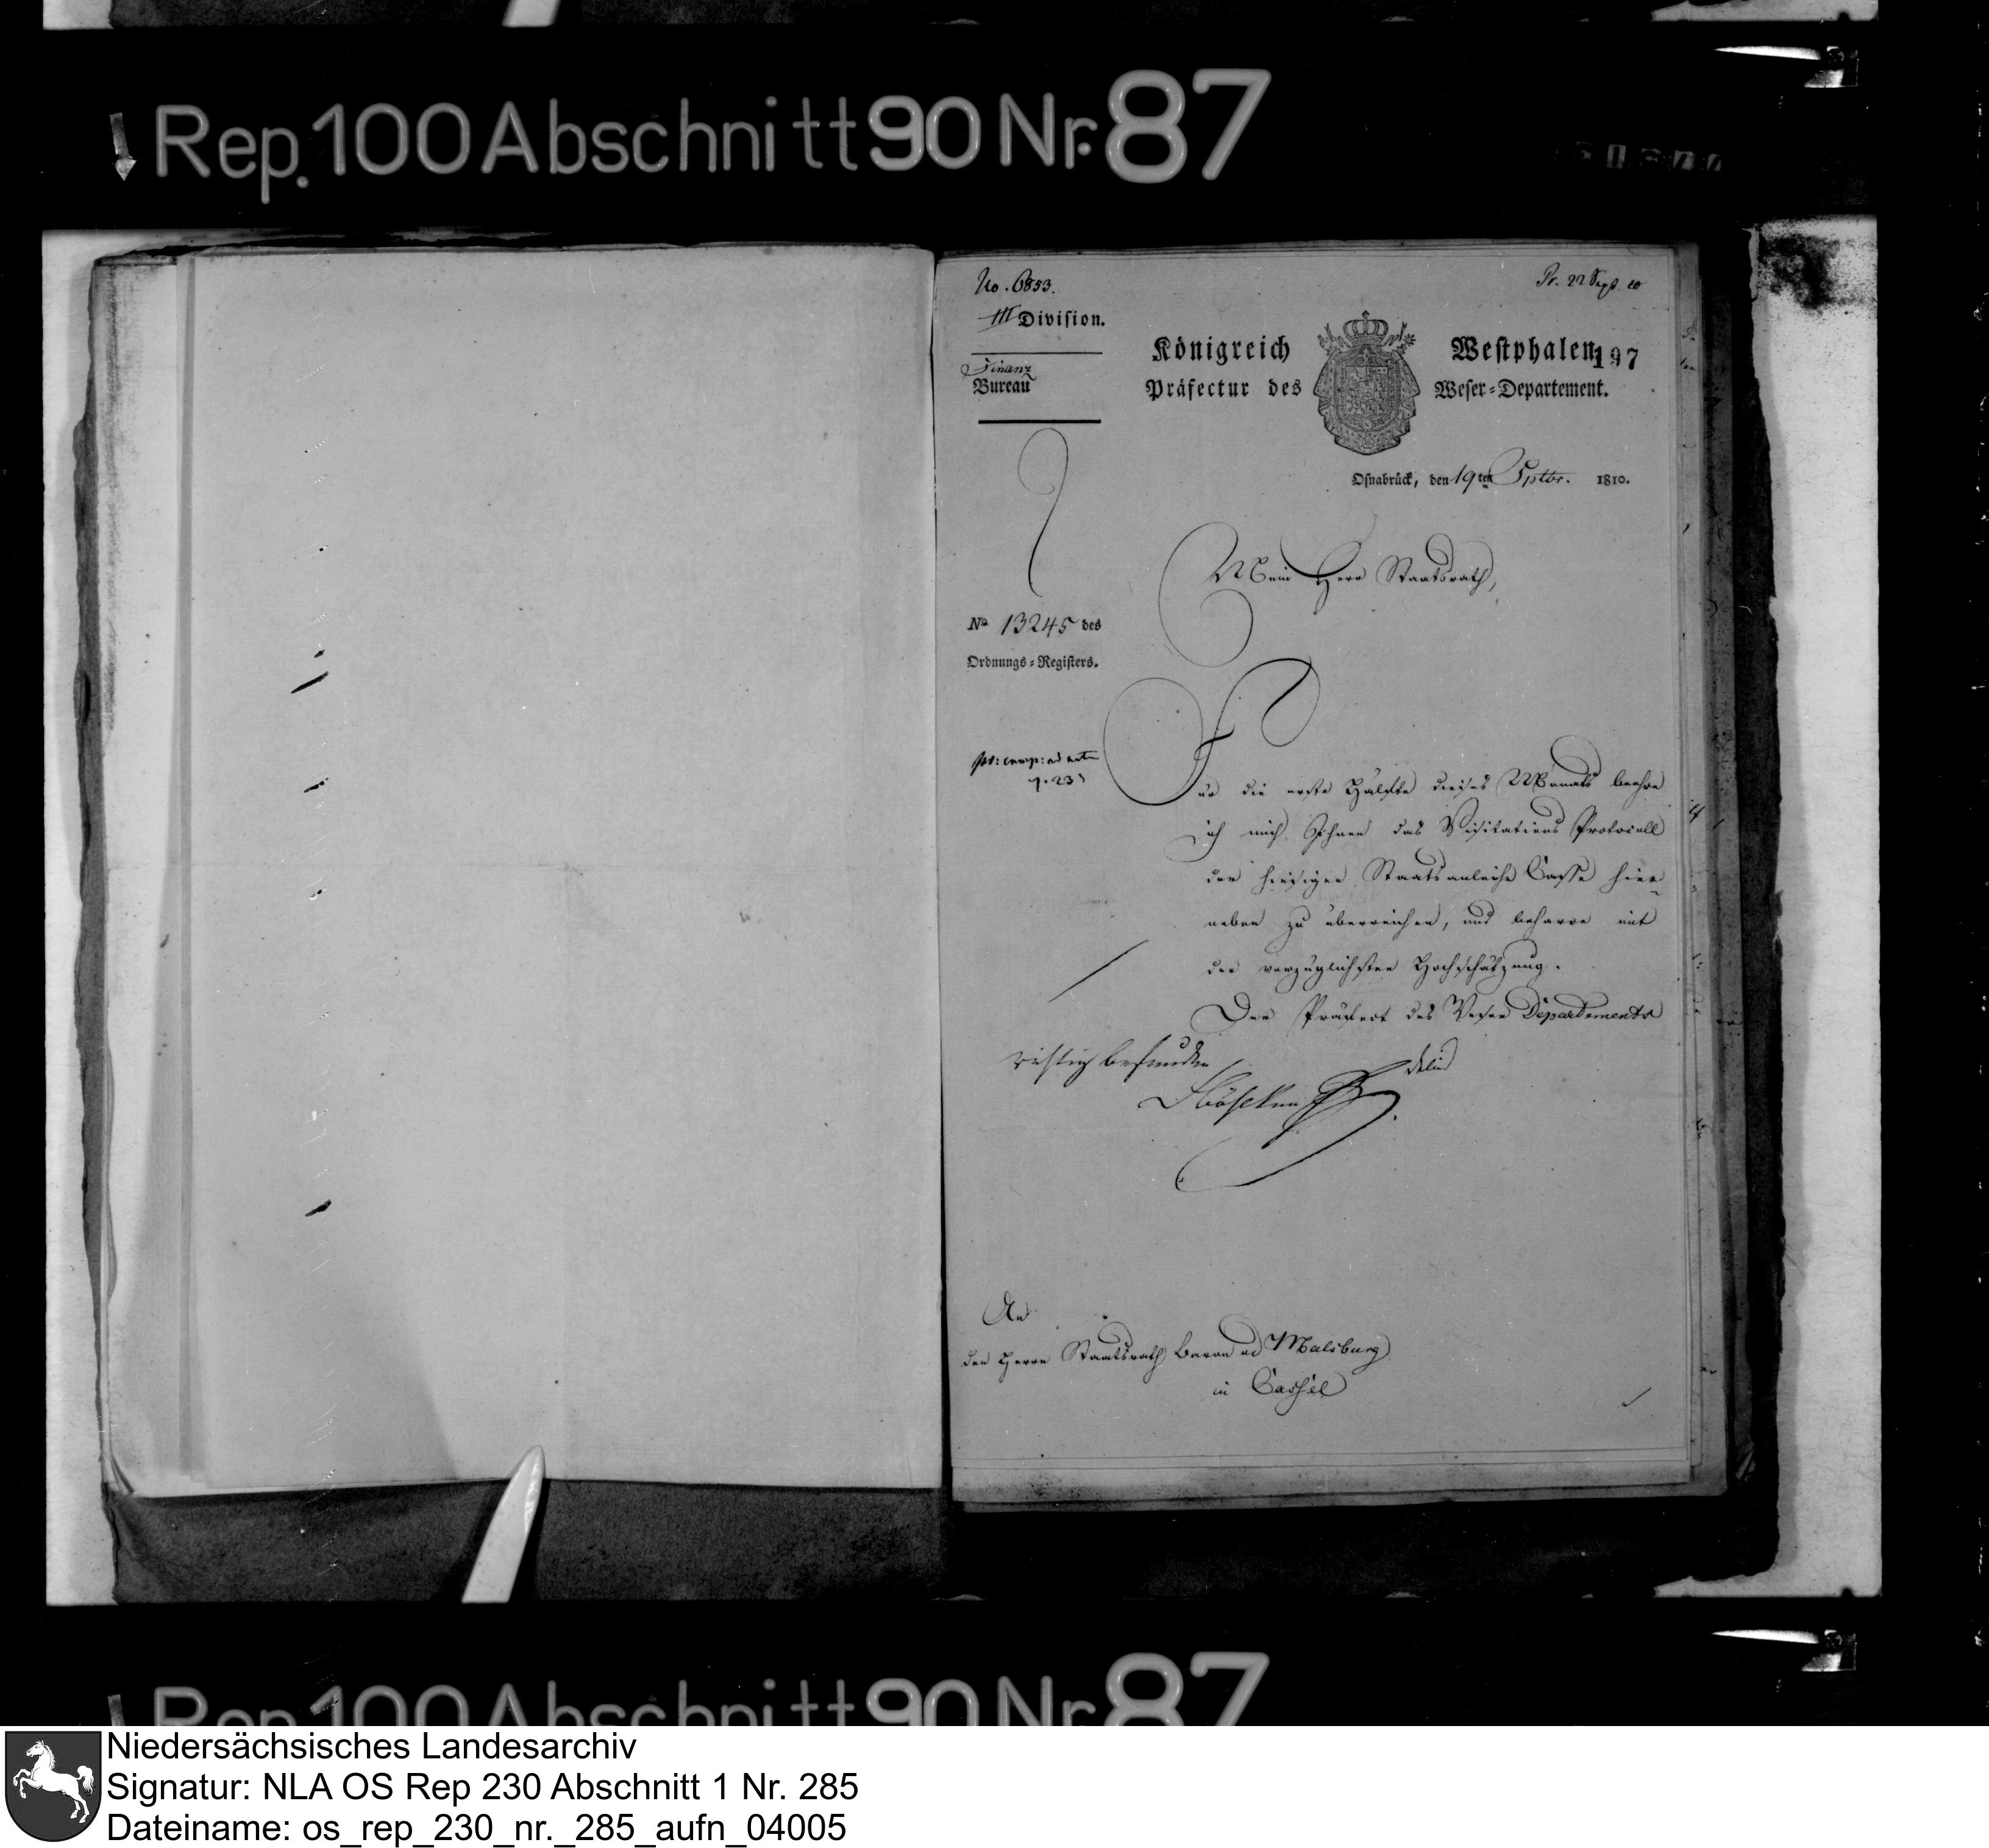 Rep. 100 Abschnitt 90 Nr. 87
No. 6853.
Pr. 22 Sept. 10
III Division.
Finanz
Bureau
Königreich Westphalen
197
Präfectur des Weser-Departement.
Osnabrück, den 19ten Sptbr. 1810.
Mein Herr Staatsrath,
No 13245 des
Ordnungs-Registers.
Für die erste Hälfte dieses Monats beehre
ich mich Ihnen das Visitations Protocoll
der hiesigen Staatsanleihe Casse hier
neben zu überreichen, und beharre mit
der vorzüglichsten Hochschätzung.
Der Präfect des Weser Departements
richtig befunden
An
den Herrn Staatsrath Baron von Malsburg
in Cassel
Rep. 100 Abschnitt 90 Nr. 87
Niedersächsisches Landesarchiv
Signatur: NLA OS Rep 230 Abschnitt 1 Nr. 285
Dateiname: os_rep_230_nr._285_aufn_04005